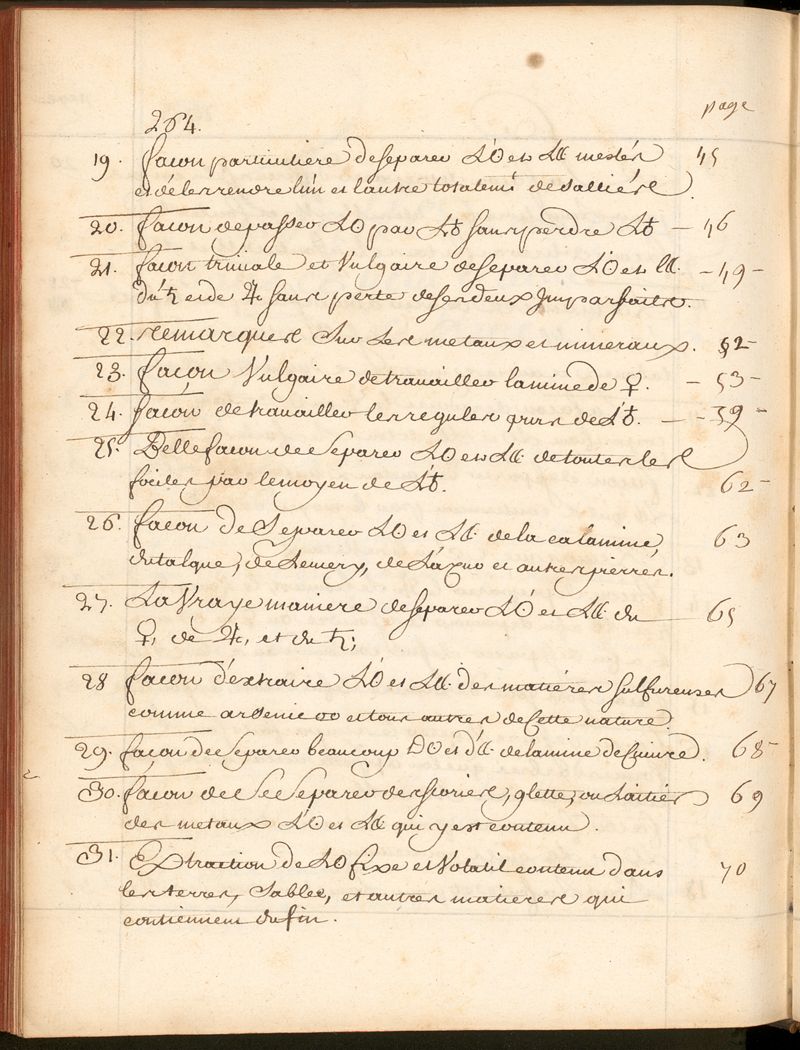 page
264.
19. façon particuliere de separer L'☉ et L'☾ meslés 45
et de les rendre l'un et l'autre de sallié
20. façon de passer L'☉ par L'♁ sans perdre L'♁ — 46
21. façon triviale et Vulgaire de separer L'☉ et ☾. — 49 —
du ♄ et de ♃ sans perte de ses deux Imparfaits.
22. remarques Sur Les metaux et mineraux. 52 —
23. façon Vulgaire de travailler la mine de ♀. — 53 —
24. façon de travailler les regules purs de L'♁. — 59 —
25. Belle façon de Separer L'☉ et L'☾ de toutes les
par le moyen de L'♁. 62 —
26. façon de Separer L'☉ et L'☾. de la calamine, 63
du talque, de Lemery, de et autres pierres.
27. La Vraye maniere de separer L'☉ et L'☾. du 65
♀, de ♃, et du ♄;
28 façon d'extraire L'☉ et L'☾. des matiéres sulfureuses 67
comme arsenic oo et tous autres de Cette nature.
29. façon de Separer beaucoup D'☉ et d'☾. de la mine de Cuivre. 68 —
30. façon de Separer des scories, glette, ou Laitier 69
des metaux L'☉ et L'☾ qui y est contenu.
31. Extraction de L'☉ fixe et Volatil contenu dans 70
les terres, Sables, et autres matieres qui
contiennent du fin.